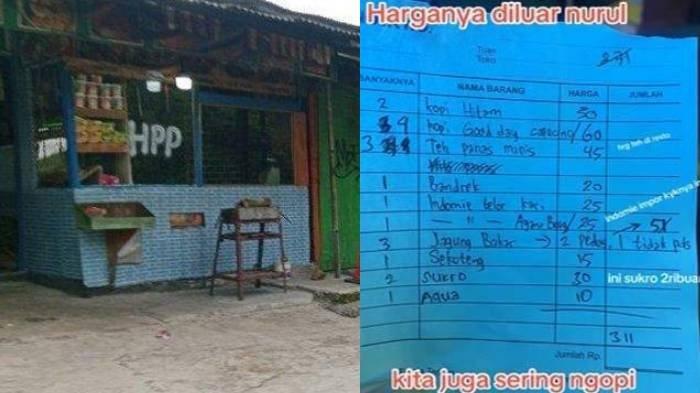 HPP
Harganya diluar nurul
Tuan
Toko
BANYAKNYA NAMA BARANG HARGA JUMLAH
2 kopi Hitam 30
4 kopi Good day 60
3 Teh panas manis 45 teg teh di resto
1 Bandrek 20
1 Indomie telor 25 Indomie impor kyknya in
1 — " — 25 → 51
3 Jagung Bakar → 2 Pedas, 1 tidak pds
1 Sekoteng 15
2 SUKRO 30 ini sukro 2ribuan
1 Aqua 10
311
Jumlah Rp.
kita juga sering ngopi